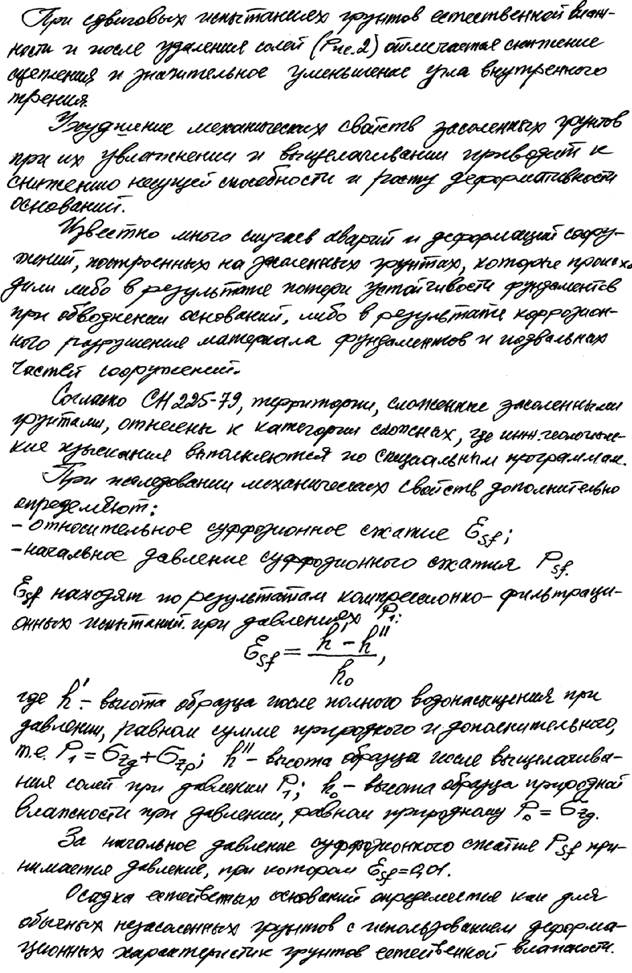 При сдвиговых испытаниях грунтов естественной влаж-
ности и после удаления солей (Рис.2) отмечается снижение
сцепления и значительное уменьшение угла внутреннего
трения.
Ухудшение механических свойств засоленных грунтов
при их увлажнении и выщелачивании приводит к
снижению несущей способности и росту деформативности
оснований.
Известно много случаев аварий и деформаций соору-
жений, построенных на засоленных грунтах, которые происхо-
дили либо в результате потери устойчивости фундаментов
при обводнении оснований, либо в результате коррозион-
ного разрушения материала фундаментов и подвальных
частей сооружений.
Согласно СН 225-79, территории, сложенные засоленными
грунтами, отнесены к категории сложных, где инж. геологичес-
кие изыскания выполняются по специальным программам.
При исследовании механических свойств дополнительно
определяют:
- относительное суффозионное сжатие Ɛsf;
- начальное давление суффозионного сжатия Psf.
Ɛsf находят по результатам компрессионно-фильтраци-
онных испытаний при давлениях P₁:
Ɛsf = (h' - h'')/h₀,
где h' - высота образца после полного водонасыщения при
давлении, равном сумме природного и дополнительного,
т.е. P₁ = σzg + σzp; h'' - высота образца после выщелачива-
ния солей при давлении P₁; h₀ - высота образца природной
влажности при давлении, равном природному P₀ = σzg.
За начальное давление суффозионного сжатия Psf при-
нимается давление, при котором Ɛsf = 0,01.
Осадка естеств‌ых оснований определяется как для
обычных незасоленных грунтов с использованием деформа-
ционных характеристик грунтов естественной влажности.